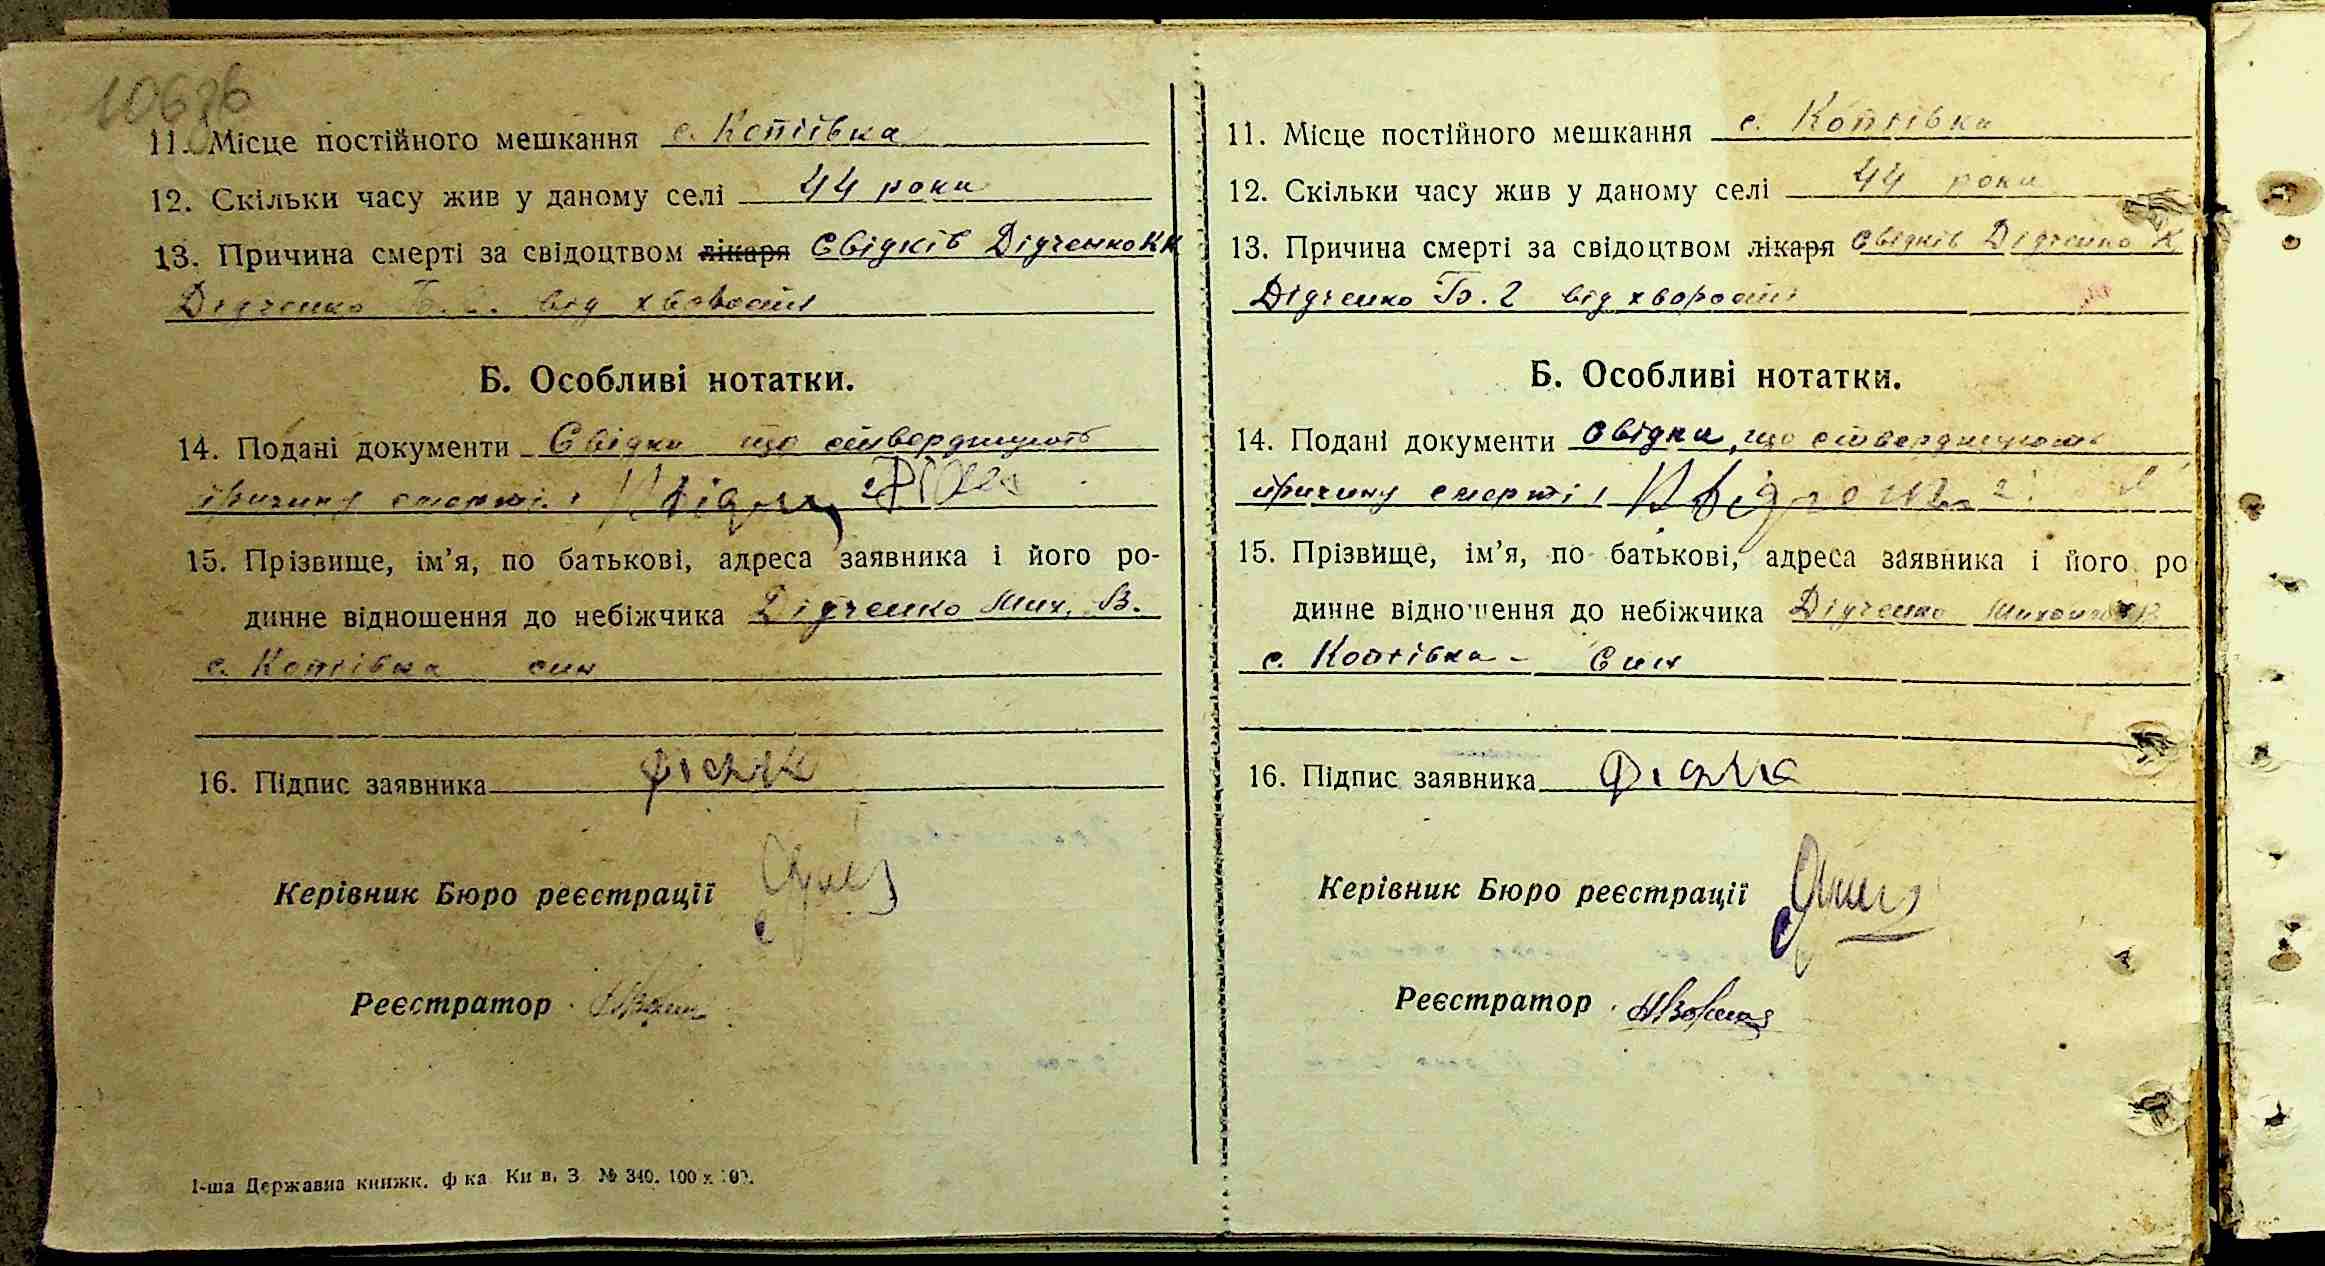 11. Місце постійного мешкання с. Копіївка
12. Скільки часу жив у даному селі 44 роки
13. Причина смерті за свідоцтвом лікаря Свідків Дідченко К К
Дідченко Б. від хворости
Б. Особливі нотатки.
14. Подані документи Свідки що стверджують
причину смерті:
15. Прізвище, ім’я, по батькові, адреса заявника і його ро-
динне відношення до небіжчика Дідченко Мих. В.
с. Копіївка син
16. Підпис заявника
Керівник Бюро реєстрації
Реєстратор
1-ша Державна книжк. ф ка Ки в. З № 340. 100 х
11. Місце постійного мешкання с. Копіївка
12. Скільки часу жив у даному селі 44 роки
13. Причина смерті за свідоцтвом лікаря свідків Дідченко К
Дідченко Б. Г від хворости
Б. Особливі нотатки.
14. Подані документи свідки, що стверджують
причину смерті
15. Прізвище, ім’я, по батькові, адреса заявника і його ро
динне відношення до небіжчика Дідченко
с. Копіївка - син
16. Підпис заявника
Керівник Бюро реєстрації
Реєстратор